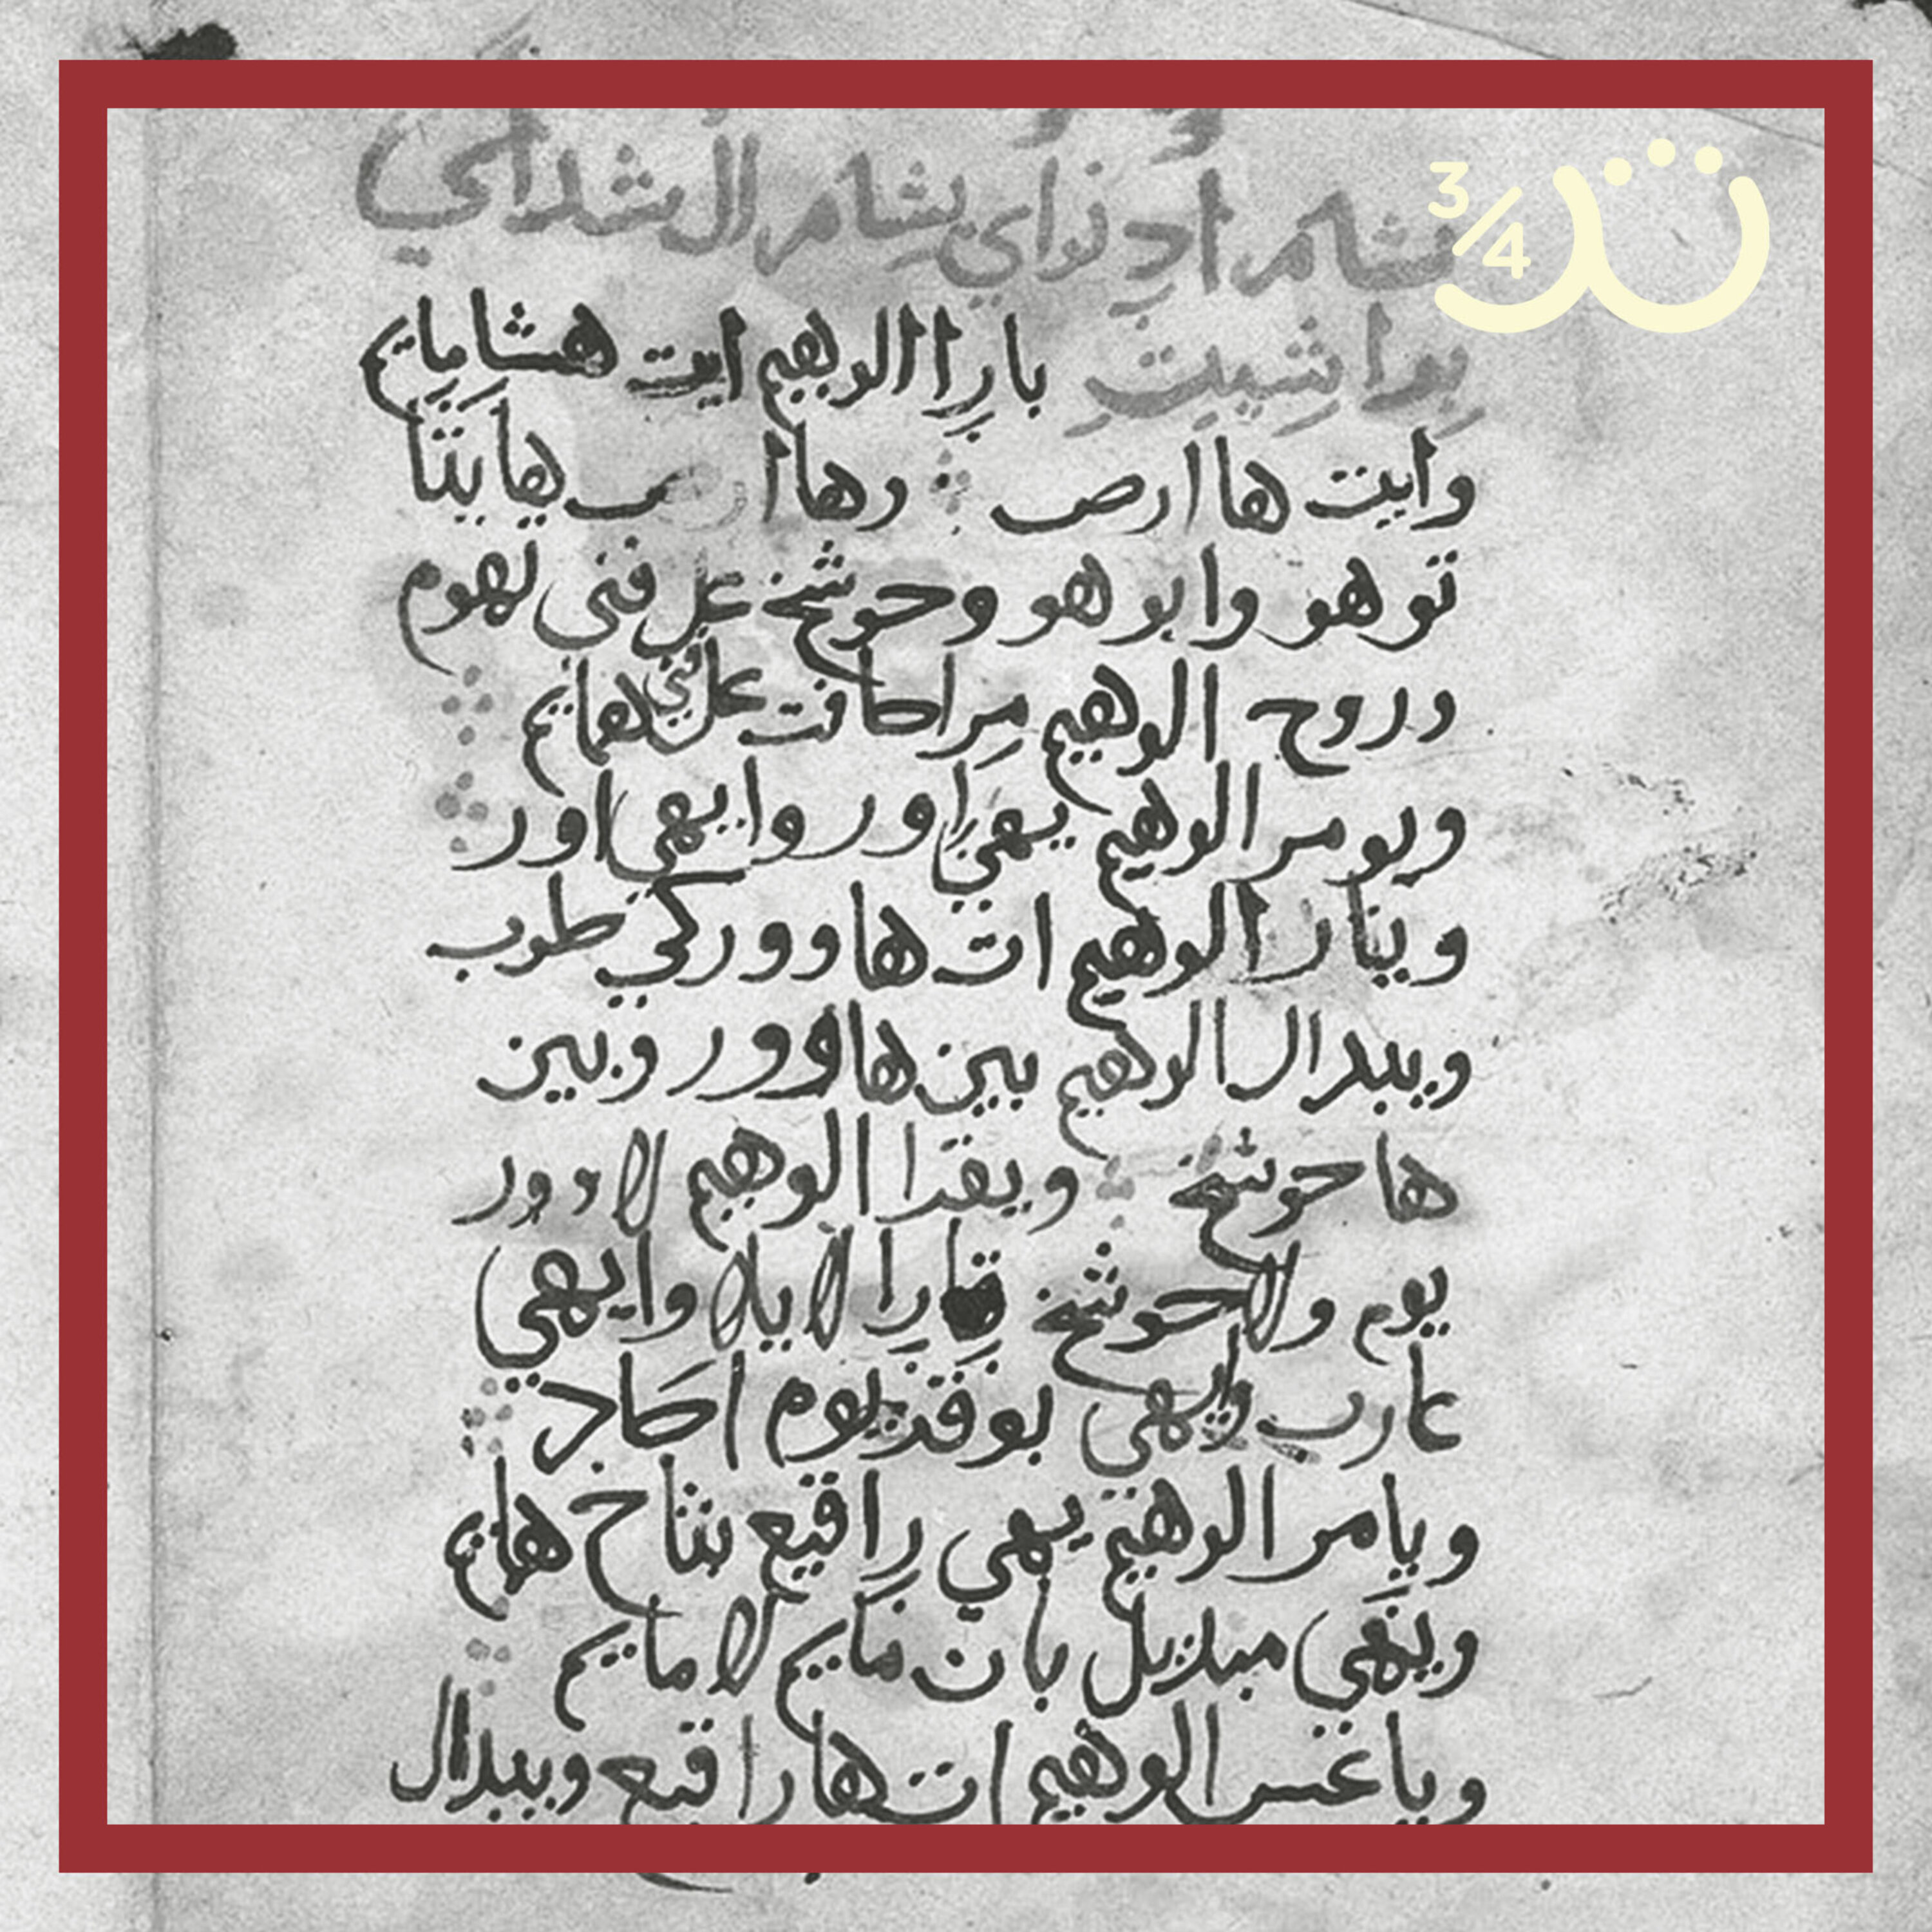 بشلم ادِنواي بِشلم ال شداي
بِراشِيتِ بارِا الوهيم ايت هشامِايم
وايت ها ارص وها ا ها يتا
توهو وابوهو وحوشخ عل فنى تهوم
وروح الوهيم مِراحافت عل فني همايم
ويومر الوهيم يهي اور وايهي اور
وييار الوهيم ات ها وور كي طوب
ويبدال الوهيم بين ها وور وبين
ها حوشخ ويقرا الوهيم لا وور
يوم ولا حوشخ قارِا لايلا وايهي
عارب وايهي بوقر يوم احاد
ويامر الوهيم يهي رِاقيع بتاخ همايم
ويهي مبديل بان مايم لا مايم
وياعس الوهيم ات ها راقيع ويبدال
3/4